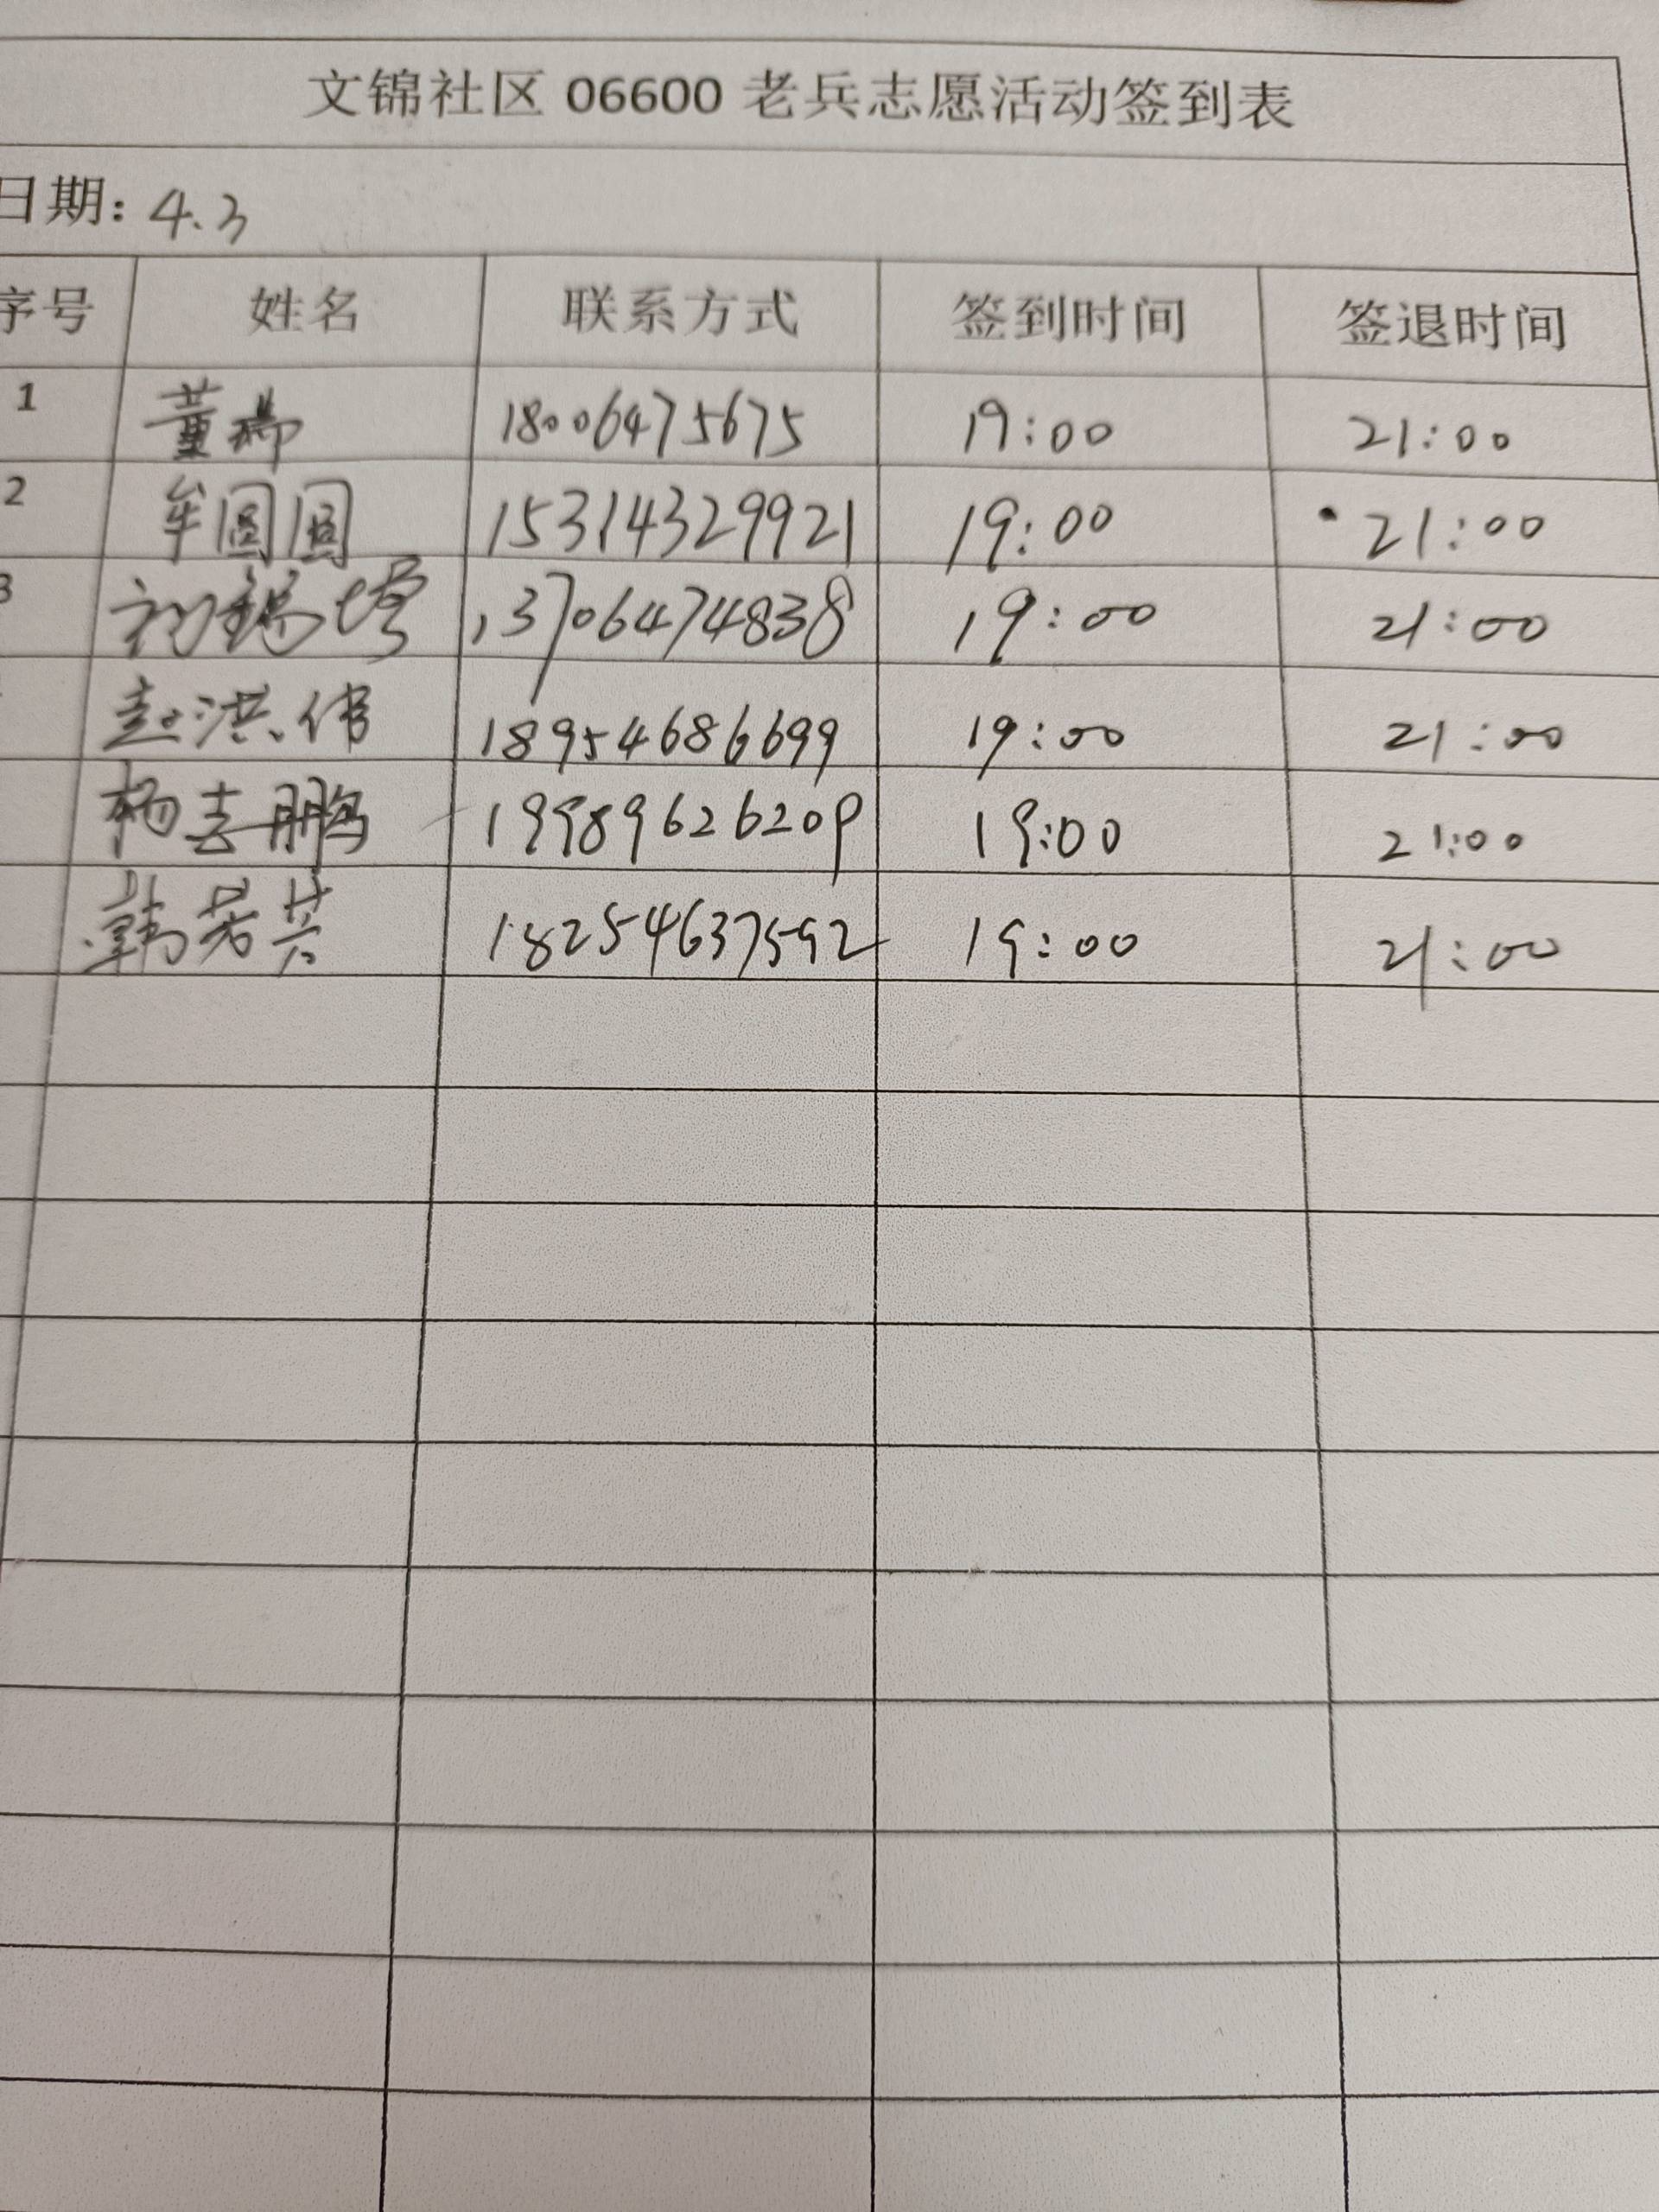 文锦社区 06600 老兵志愿活动签到表
日期: 4.3
序号 姓名 联系方式 签到时间 签退时间
1 董 18006475675 19:00 21:00
2 牟圆圆 15314329921 19:00 21:00
3 13706474838 19:00 21:00
赵洪伟 18954686699 19:00 21:00
杨志鹏 19989626209 19:00 21:00
韩芳芸 18254637592 19:00 21:00